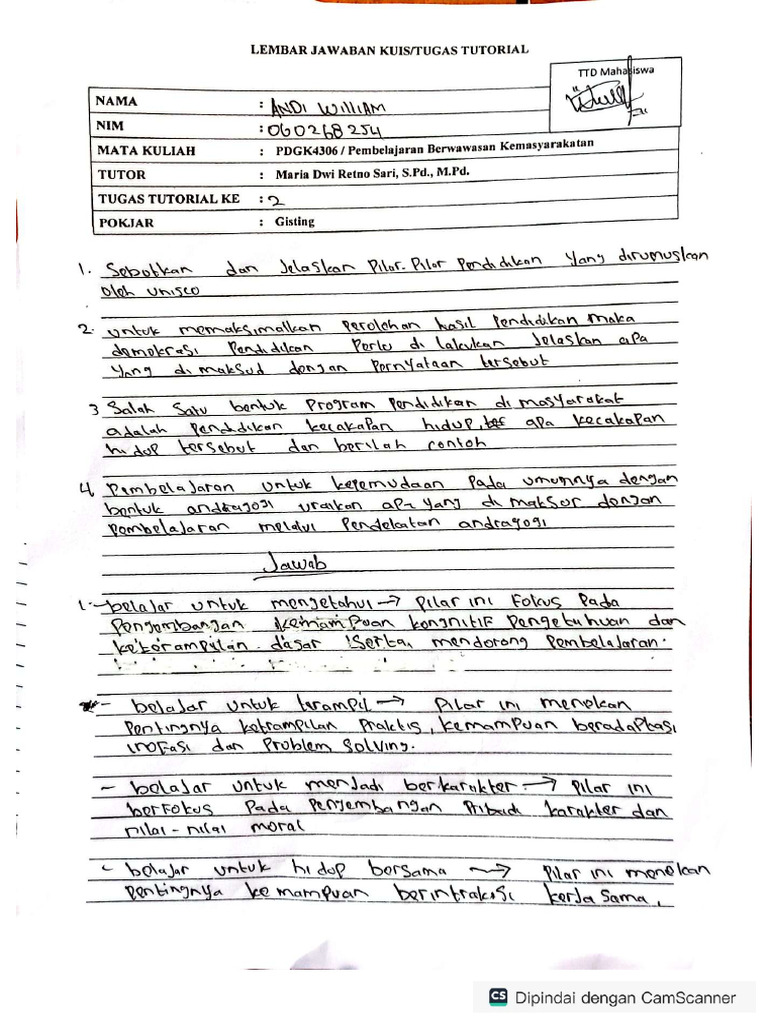 LEMBAR JAWABAN KUIS/TUGAS TUTORIAL
TTD Mahasiswa
NAMA : ANDI WILLIAM
NIM : 060268254
MATA KULIAH : PDGK4306 / Pembelajaran Berwawasan Kemasyarakatan
TUTOR : Maria Dwi Retno Sari, S.Pd., M.Pd.
TUGAS TUTORIAL KE : 2
POKJAR : Gisting
1. Sebotkan dan Jelaskan Pilar-Pilar Pendidikan yang dirumuskan
oleh unisco
2. untuk memaksimalkan perolehan hasil Pendidikan maka
demokrasi Pendidikan Perlu di lakukan Jelaskan apa
yang di maksud dengan Pernyataan tersebut
3 Salah satu bentuk Program Pendidikan di masyarakat
adalah Pendidikan kecakapan hidup, apa kecakapan
hidup tersebut dan berilah contoh
4 Pembelajaran untuk kepemudaan pada umumnya dengan
bentuk andragogi uraikan apa yang di maksur dengan
Pembelajaran melalui Pendekatan andragogi
Jawab
1. - belajar untuk mengetahui → pilar ini Fokus Pada
Pengembangan kemampuan kongnitif Pengetuhuan dan
keterampilan dasar Serta mendorong Pembelajaran.
- belajar untuk terampil → Pilar ini menekan
Pentingnya ketrampilan Praktis, kemampuan beradaptasi
inofasi dan Problem Solving.
- belajar untuk menjadi berkarakter → Pilar ini
berfokus Pada Pengembangan Pribadi karakter dan
nilai-nilai moral
- belajar untuk hidup bersama → Pilar ini menekan
Pentingnya kemampuan berintraksi kerja sama,
CS Dipindai dengan CamScanner